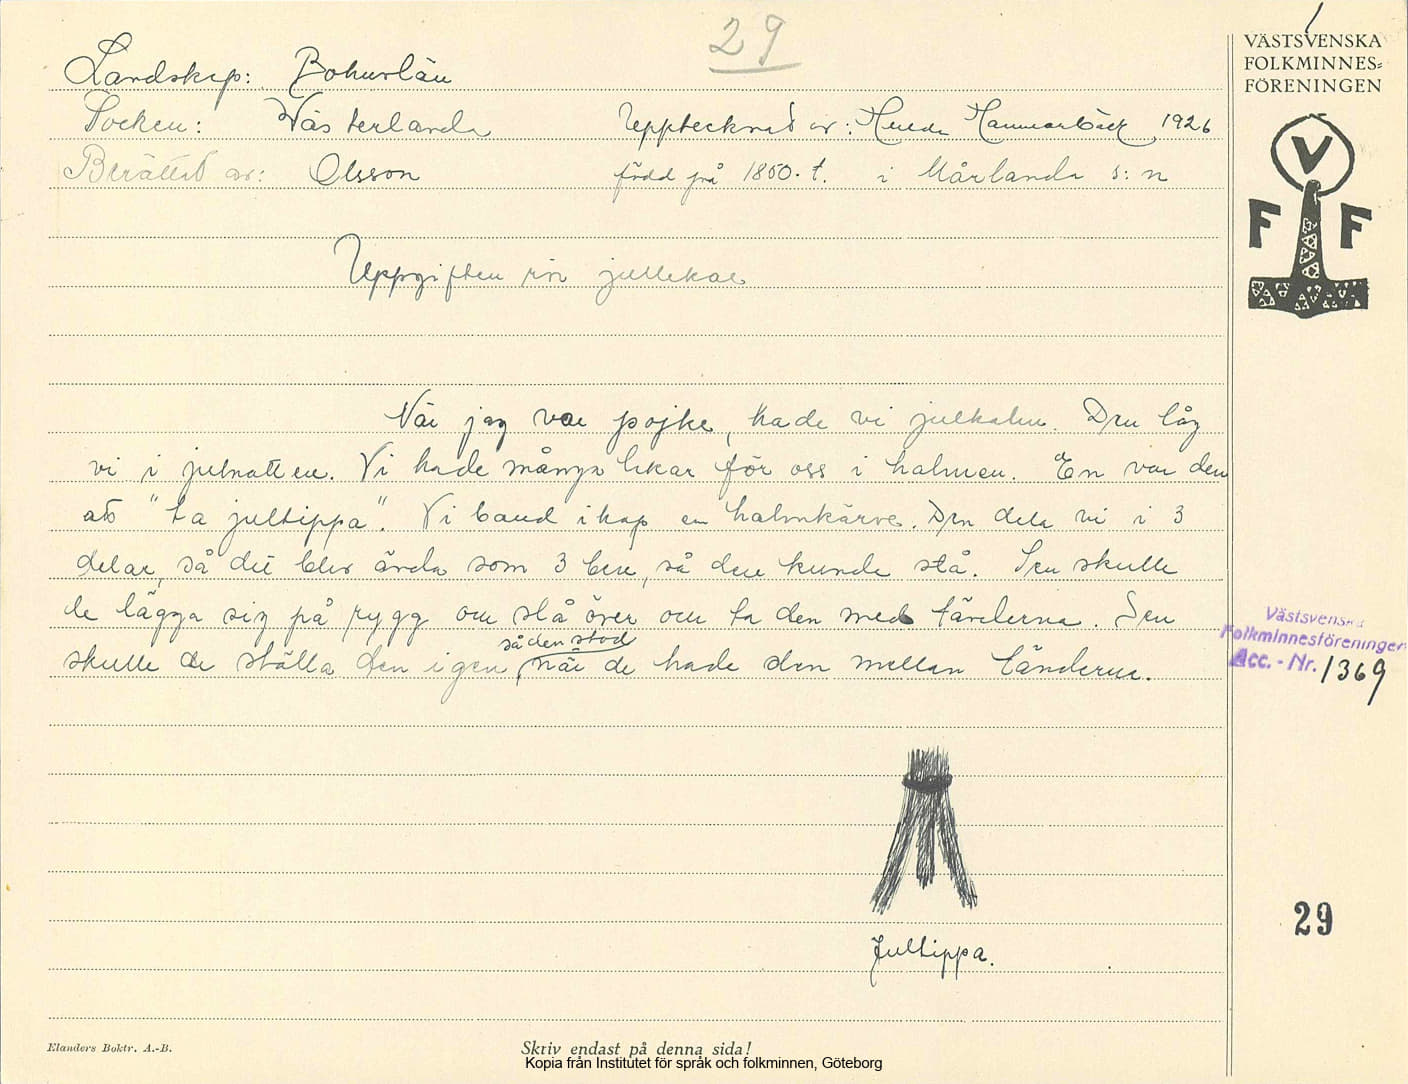 29
VÄSTSVENSKA
FOLKMINNES=
FÖRENINGEN
V
F F
Landskap: Bohuslän
Socken: Västerlanda Upptecknat av: Hulda Hammarbäck 1926
Berättat av: Olsson född på 1850-t. i Mårlanda s:n
Uppgiften rör jullekar
När jag var pojke, hade vi julhalm. Den låg
vi i julnatten. Vi hade många lekar för oss i halmen. En var den
att "ta jultippa". Vi band ihop en halmkärve. Den dela vi i 3
delar, så det blev ända som 3 ben, så den kunde stå. Sen skulle
de lägga sig på rygg om slå över om ta den med tänderna. Sen
skulle de ställa den igen, så den stod när de hade den mellan tänderna.
Västsvenska
Folkminnesföreningen
Acc. - Nr. 1369
Jultippa.
29
Elanders Boktr. A.-B.
Skriv endast på denna sida!
Kopia från Institutet för språk och folkminnen, Göteborg